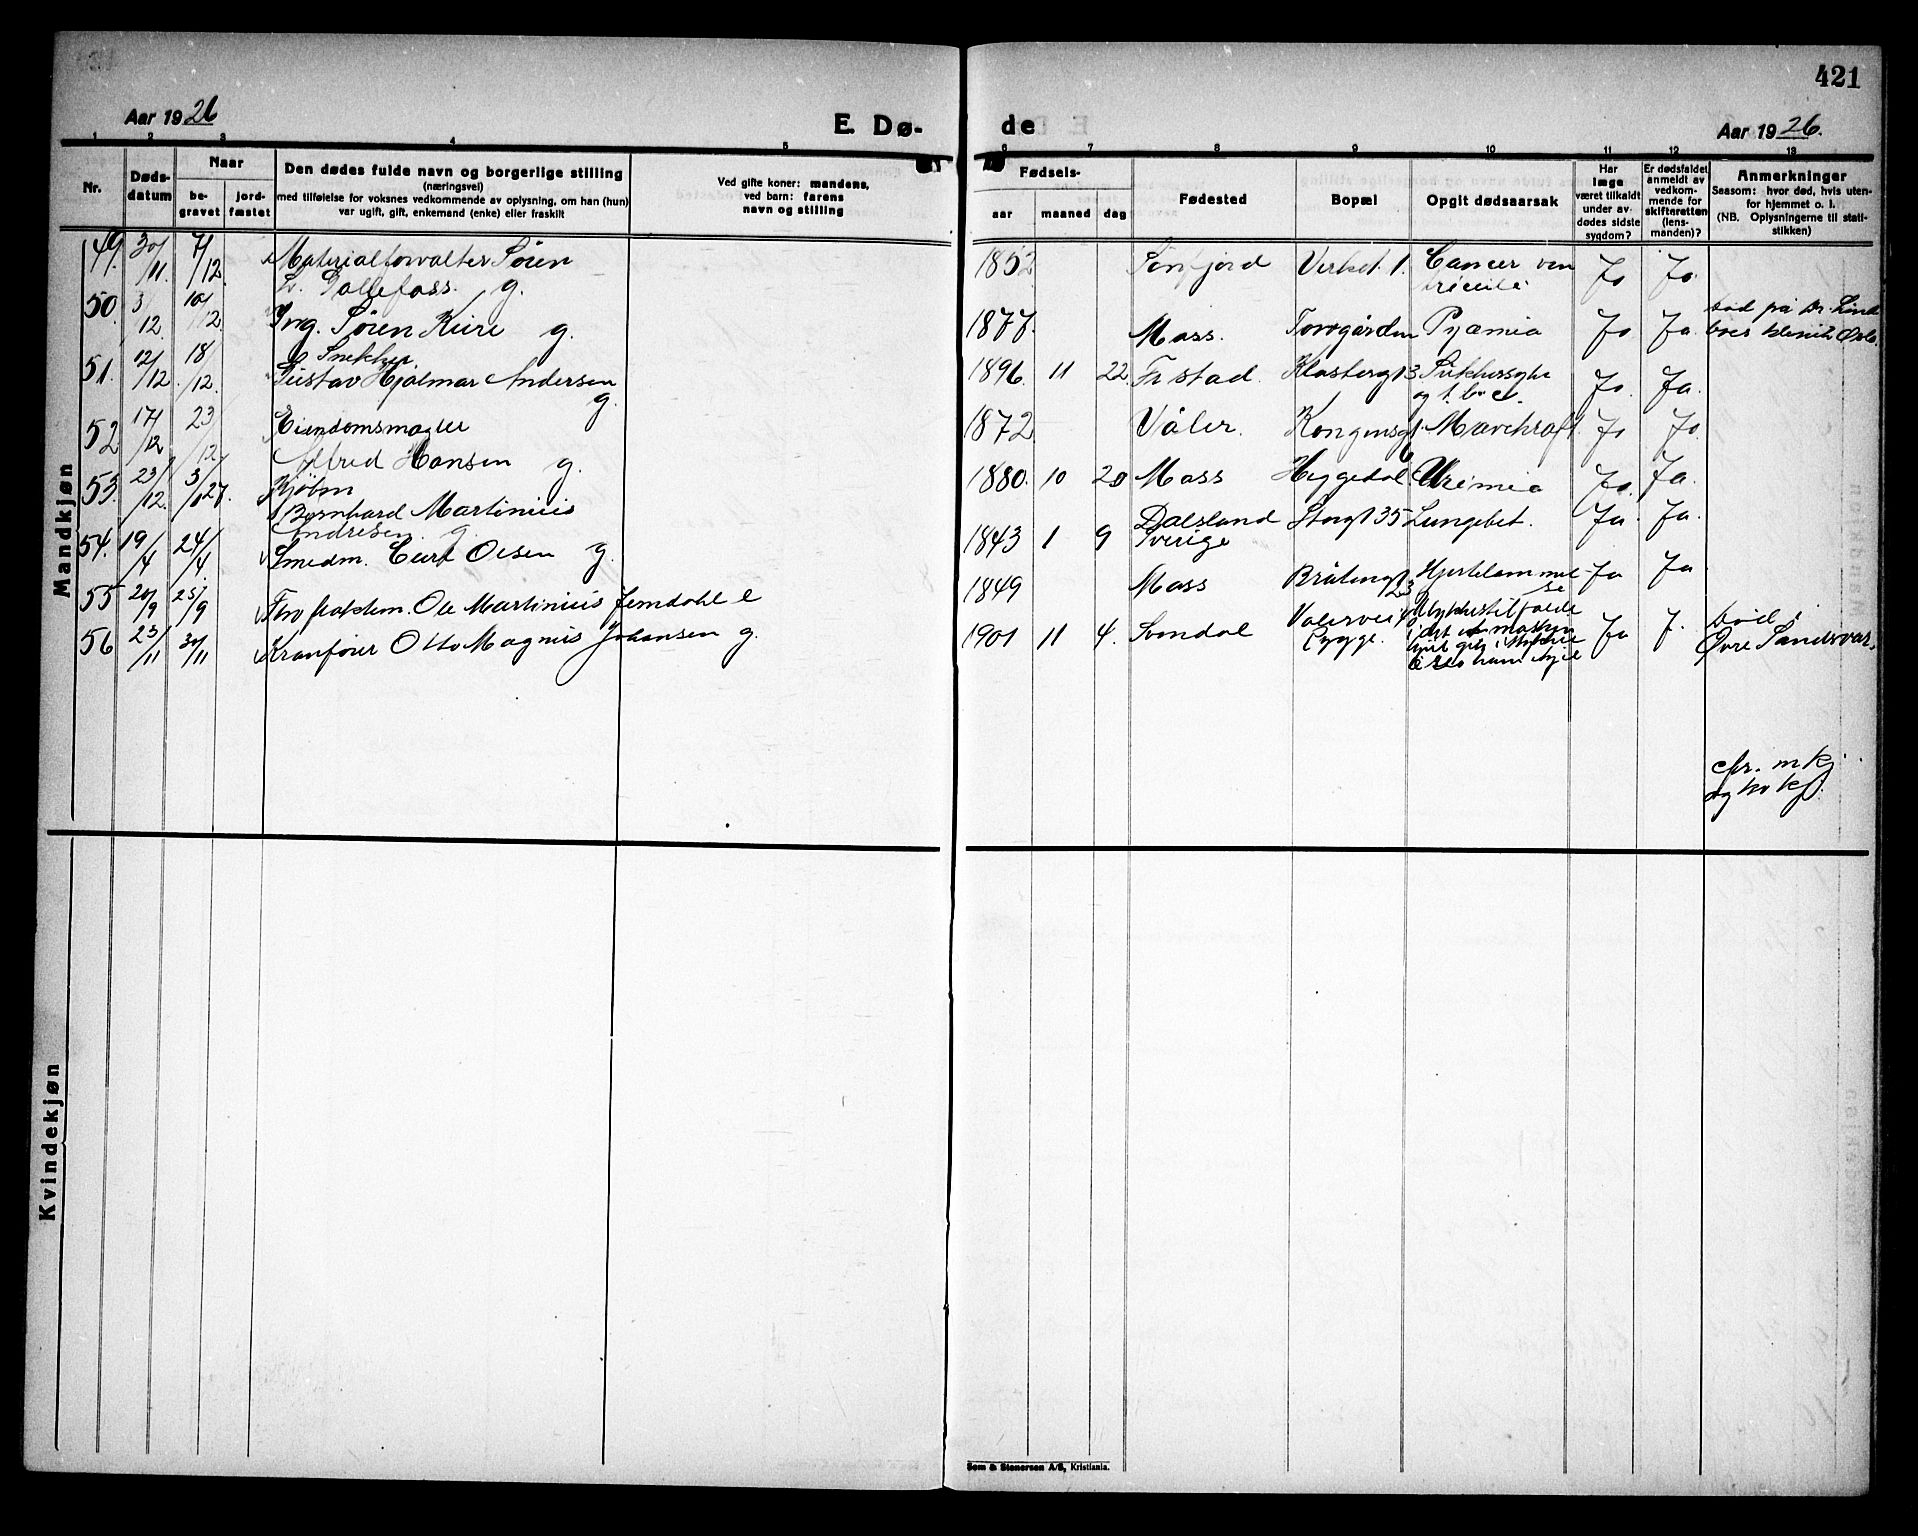 421
Aar 1926
E. Dø-
de
Aar 1926.
1 2 3 4 5 6 7 8 9 10 11 12 13
Nr.
Døds-
datum
Naar
be-
gravet
jord-
fæstet
Den dødes fulde navn og borgerlige stilling
(næringsvei)
med tilføielse for voksnes vedkommende av oplysning, om han (hun)
var ugift, gift, enkemand (enke) eller fraskilt
Ved gifte koner: mandens,
ved barn: farens
navn og stilling
Fødsels-
aar
maaned
dag
Fødested
Bopæl
Opgit dødsaarsak
Har
læge
været tilkaldt
under av-
dødes sidste
sygdom?
Er dødsfaldet
anmeldt av
vedkom-
mende for
skifteretten
(lens-
manden)?
Anmerkninger
Seasom: hvor død, hvis uten-
for hjemmet o. l.
(NB. Oplysningerne til stati-
stikken)
Mandkjøn
49. 30/11 7/12 Materialforvalter Søren
g. 1852 Cancer ven
Ja Ja
50. 3/12 10/12 Ing. Søren g. 1877. Moss. Torvgården Pyæmia Ja Ja død på Dr.
51. 12/12 18/12 Snekker
Gustav Hjalmar Andersen
g. 1896 11 22 Fr stad. Klostergt 3 Sukkersyke
og t. b. c. Ja. Ja.
52 17/12 23/12 Eiendomsmægler
Alfred Hansen g. 1872 Våler. Kongensgt. Mavekræft. Ja Ja
53. 23/12 3/1 27. Kjøbm
Bernhard Martinius
Andresen. g. 1880. 10 20 Moss Heggedal Uremia Ja. Ja.
54. 19/4 24/4 Smedm. Carl Olsen g. 1843 1 9 Dalsland
Sverige Storgt 35 Lungebet. Ja. Ja.
55 20/9 25/9 Ole Martinius Jerndahl e 1849 Moss Hjertelammel
se Ja Ja
56 23/11 30/11 Kranfører Otto Magnus Johansen g. 1901 11 4. Svindal Vålervei
Rygge. Ulykkestilfælde
idet Ja J. død i
Øvre Sandsvær.
mkj.
og kv kj.
Kvindekjøn
Sem & Stenersen A/S, Kristiania.